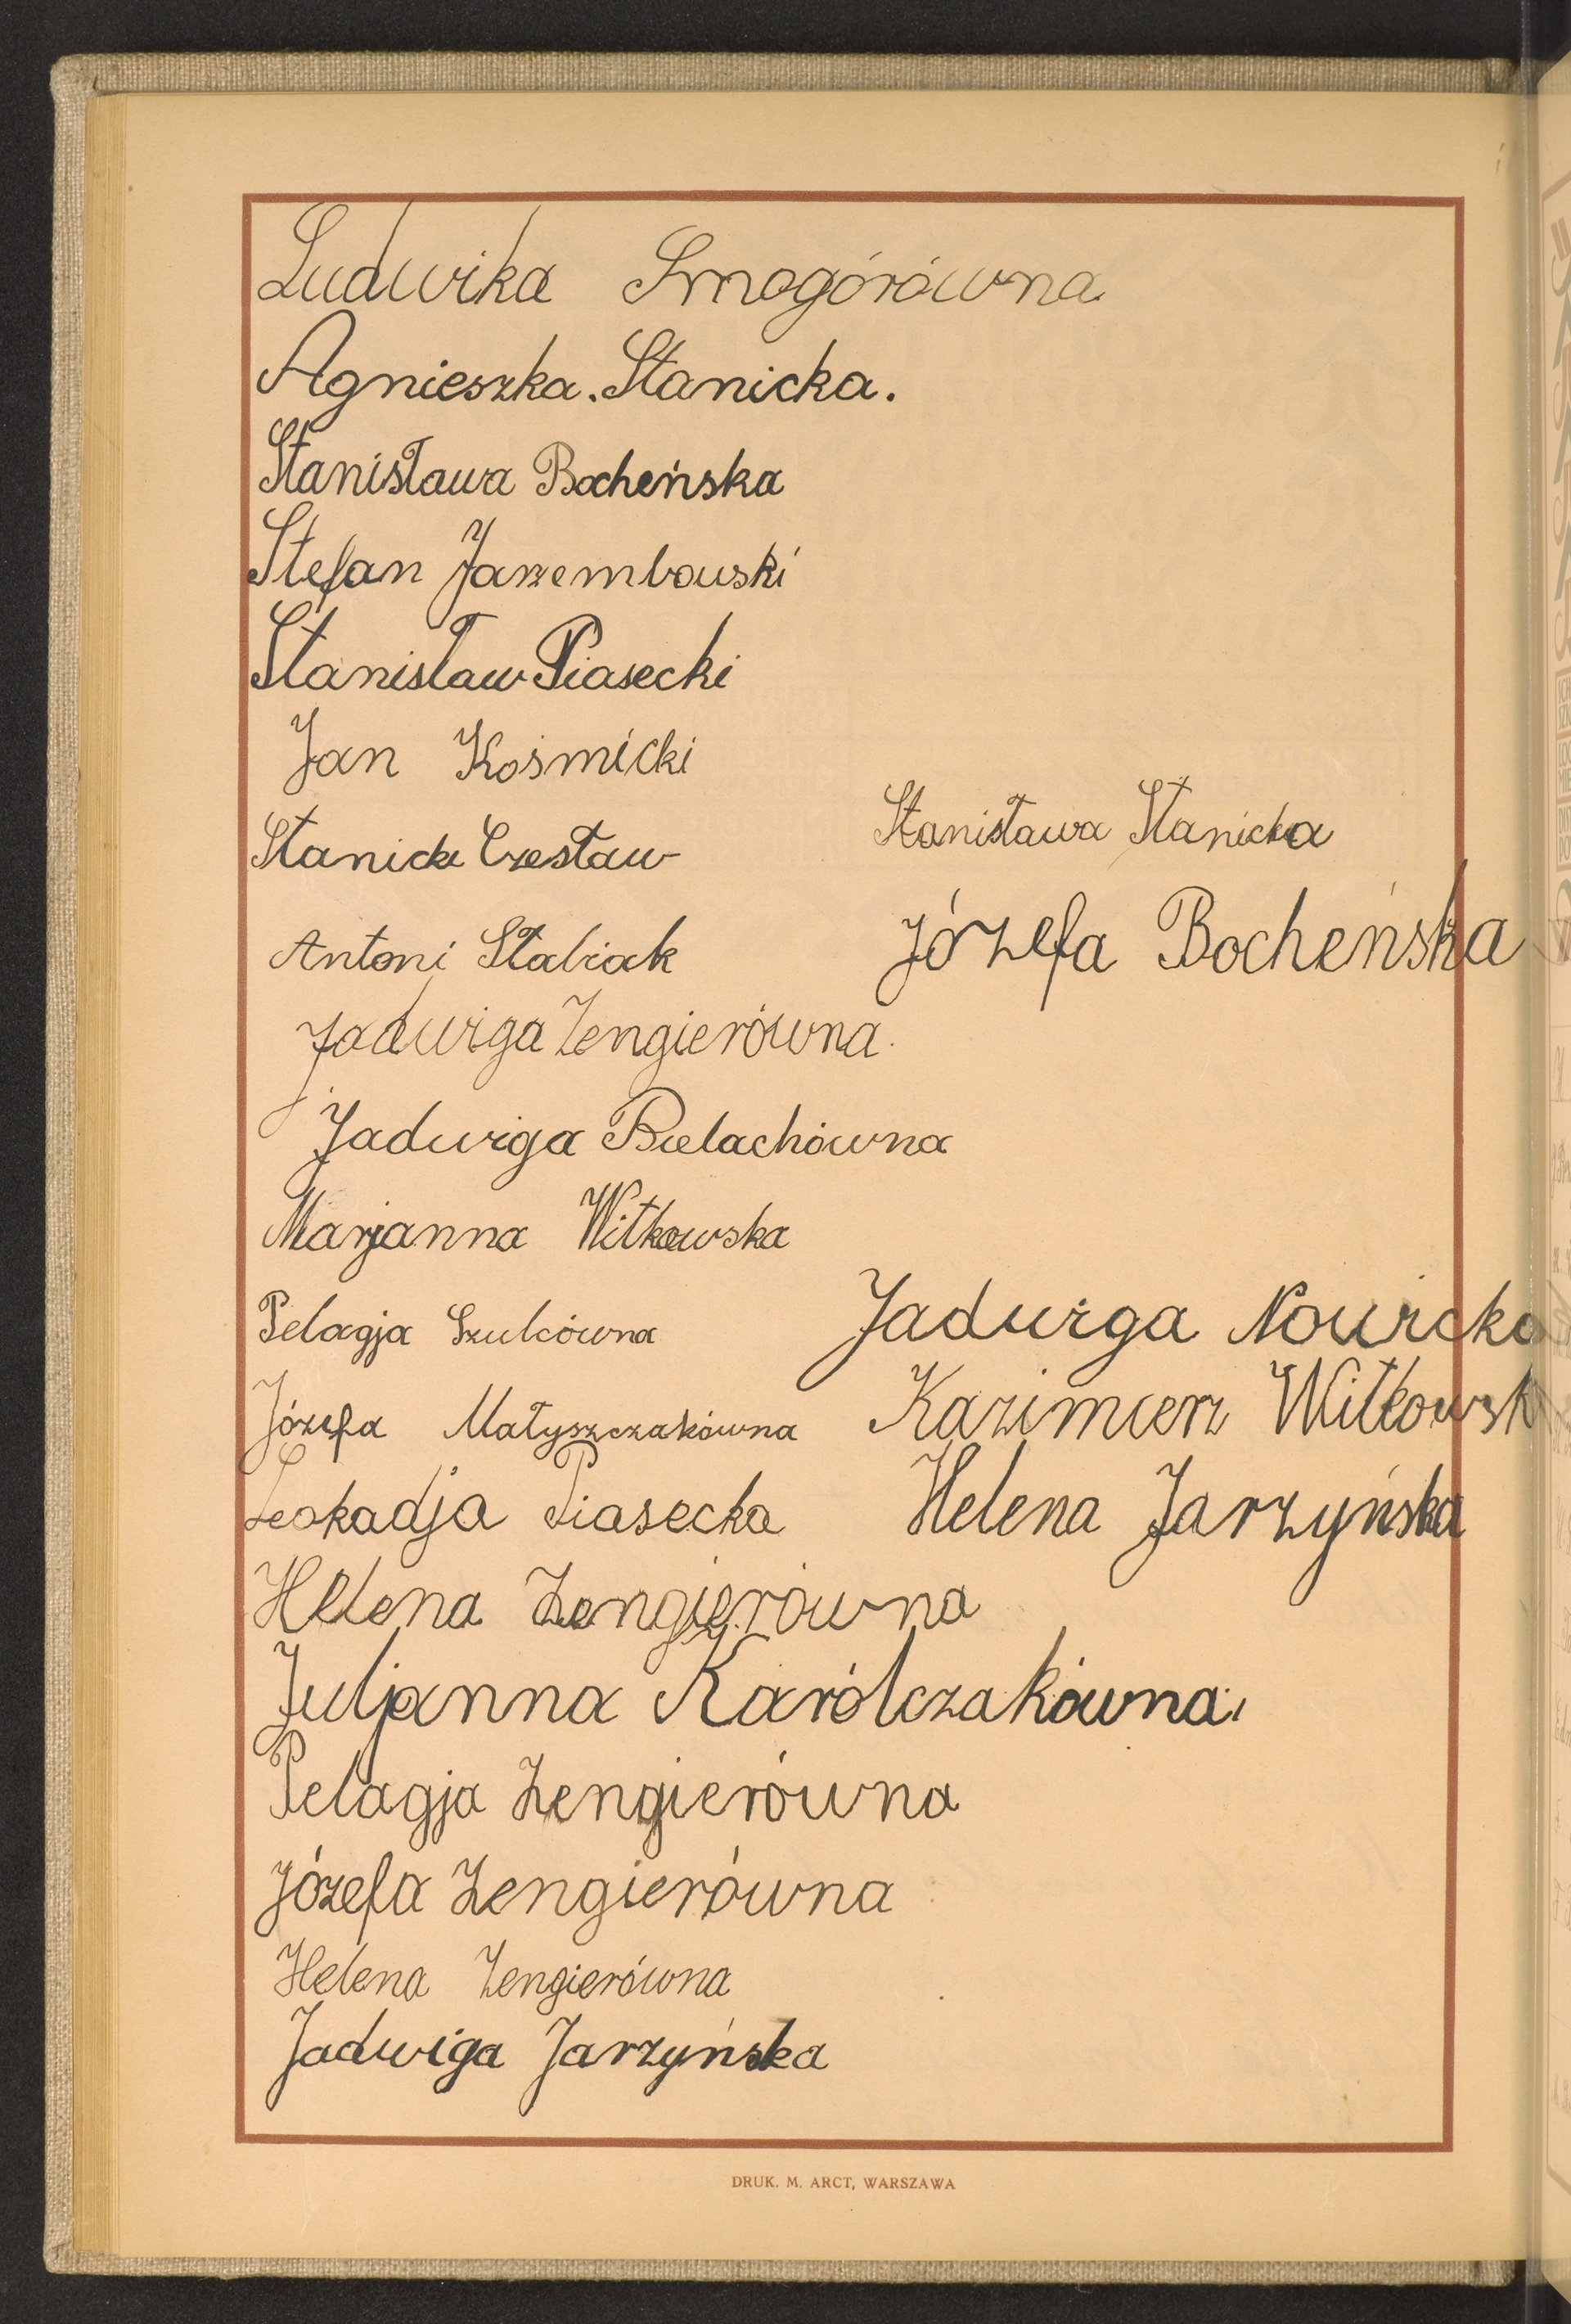 Ludwika Smogórówna
Agnieszka. Stanicka.
Stanisława Bocheńska
Stefan Jarzembowski
Stanisław Piasecki
Jan Kośmicki
Stanicki Czesław
Stanisława Stanicka
Antoni Stabiak
Józefa Bocheńska
Jadwiga Zengierówna.
Jadwiga Bielachówna
Marjanna Witkowska
Pelagja Szulcówna
Jadwiga Nowicka
Józefa Matyszczakówna
Kazimierz Witkowsk
Leokadja Piasecka
Helena Jarzyńska
Helena Zengierówna
Juljanna Karólczakówna
Pelagja Zengierówna
Józefa Zengierówna
Helena Zengierówna
Jadwiga Jarzyńska
DRUK. M. ARCT, WARSZAWA